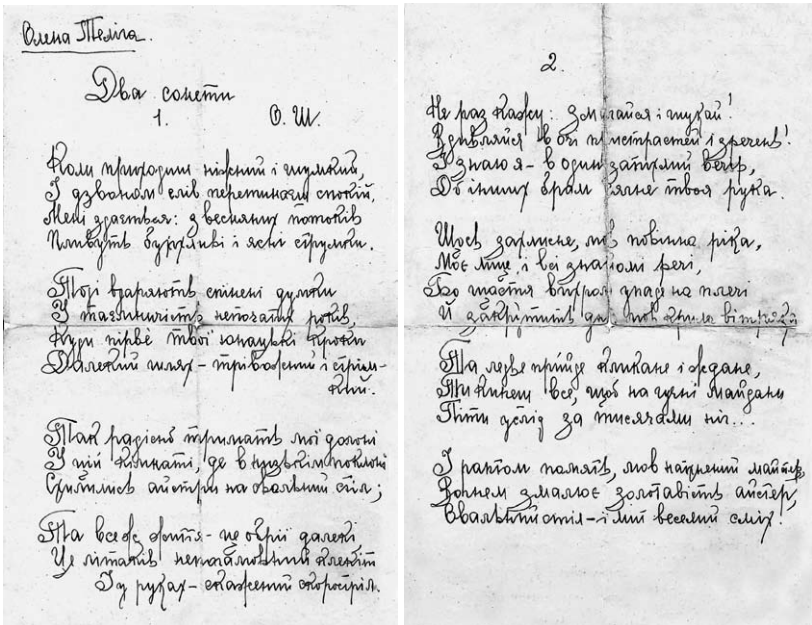 Олена Теліга.
Два сонети
1. О. Ш.
Коли приходиш ніжний і шумкий,
І дзвоном слів перетинаєш спокій,
Мені здається: з весняних потоків
Пливуть бурхливі і ясні струмки.
Тоді взаряють спінені думки
І таємничість непочатих років,
Куди пірве твої юнацькі кроки
Далекий шлях - тривожний і стрім-
кий.
Так радісно тримать мої долоні
У цій кімнаті, де в низькім поклоні
Схилились айстри на овальний стіл;
Та все ж життя - це обрії далекі
Це літаків непогамовний клекіт
І у руках - скажений скоростріл.
2.
Не раз кажу: змагайся і шукай!
Вдивляйся в очі пристрастей і зречень!
І знаю я - в один затихлий вечір,
До інших брам сягне твоя рука.
Щось захлисне, мов повінна ріка,
Моє лице, і всі знайомі речі,
Бо щастя вихром упаде на плечі
Й закрутить дні, мов крила вітряки
Та ледве прийде кликане і ждане,
Ти кинеш все, щоб на гучні майдани
Піти услід за тисячами ніг...
І раптом память, мов натхнений майстер,
Вогнем змалює золотавість айстер,
Овальний стіл - і мій веселий сміх.